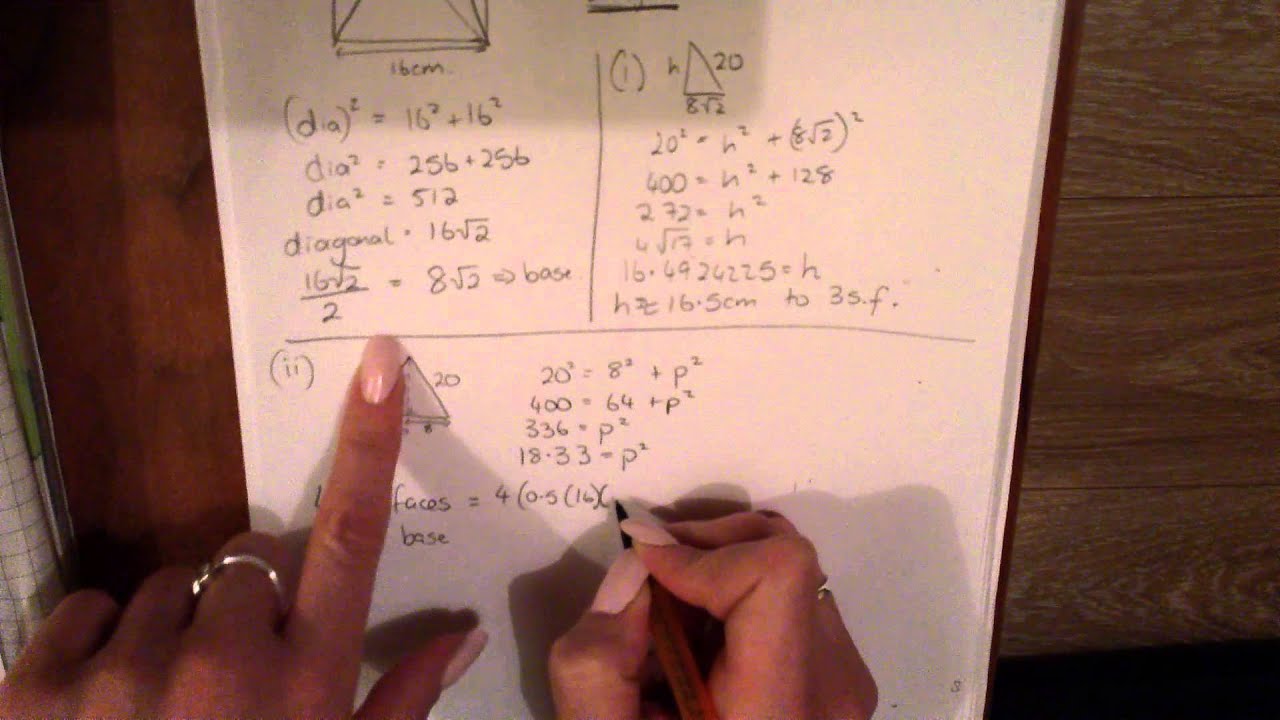 16cm.
(dia)² = 16² + 16²
dia² = 256 + 256
dia² = 512
diagonal = 16√2
16√2/2 = 8√2 ⇒ base
(i) h 20
8√2
20² = h² + (8√2)²
400 = h² + 128
272 = h²
4√17 = h
16.4924225 = h
h ≈ 16.5cm to 3s.f.
(ii) 20
8
20² = 8² + p²
400 = 64 + p²
336 = p²
18.33 = p²
faces = 4(0.5(16)(
base